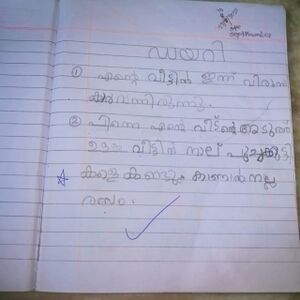 ഡയറി
① എന്റെ വീട്ടിൽ ഇന്ന് വിരുന്ന്
കാർ വന്നിരുന്നു.
② പിന്നെ എന്റെ വീടിന്റെ അടുത്ത്
ഉള്ള വീട്ടിൽ നാല് പൂച്ചക്കുട്ടി
കളെ കണ്ടു. കാണാൻ നല്ല
രസം.